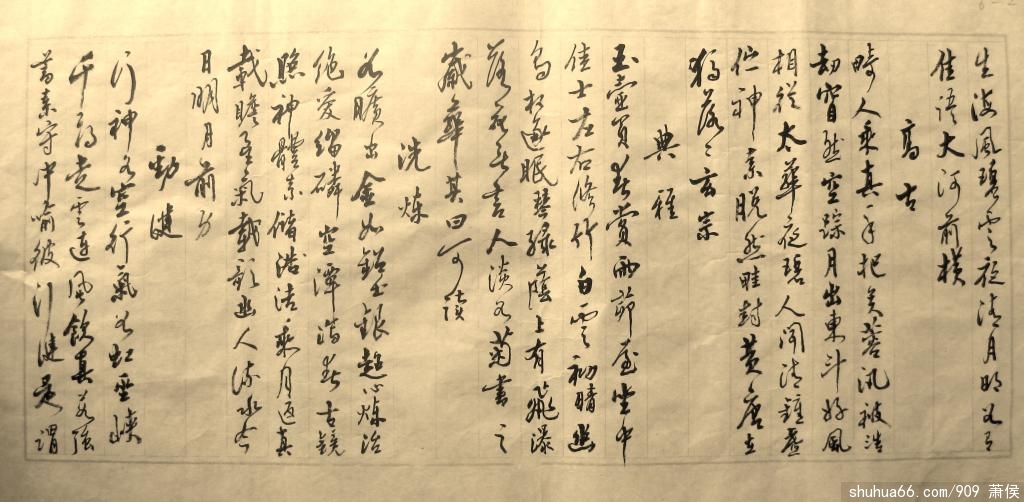 生海風碧雲夜渚月明如有
佳語大河前橫
高古
畸人乘真手把芙蓉汎彼浩
劫窅然空踪月出東斗好風
相從太華夜碧人聞清鐘虛
伫神素脱然畦封黃唐在
獨落〻玄宗
典雅
玉壺買春賞雨茆屋坐中
佳士左右修竹白雲初晴幽
鳥相逐眠琴緑蔭上有飛瀑
落花无言人淡如菊書之
歲華其曰可讀
洗煉
如曠出金如鉛出銀超心煉冶
絶愛緇磷空潭瀉春古鏡
照神體素儲潔乘月返真
載瞻星氣載歌幽人流水今
日明月前身
勁健
行神如空行氣如虹巫峽
千尋走雲連風飲真茹强
蓄素守中喻彼行健是謂
shuhua66.com/909 萧侯